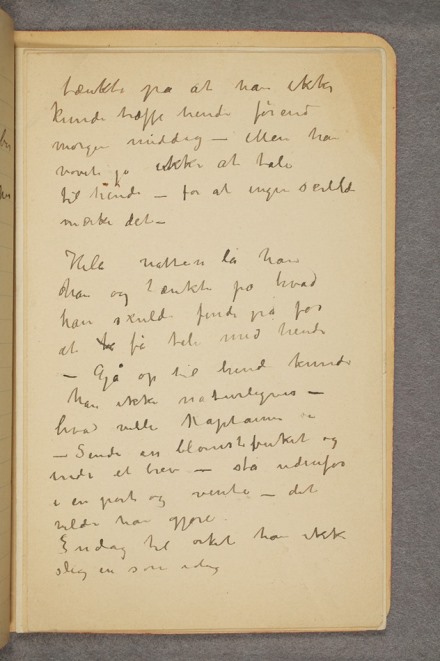 tænkte på at han ikke
kunde træffe hende førend
morgen middag — Men han
vovede jo ikke at tale
til hende — for at ingen skulde
mærke det —
Hele natten lå han
han og tænkte på hvad
han skulde finde på for
at få tale med hende
— Gå op til hende kunde
han ikke naturligvis —
hvad vilde Kaptainen
— Sende en blomsterbuket og
inde et brev — stå udenfor
i en port og vente — det
vilde han gjøre.
Endog til han ikke
slig en som